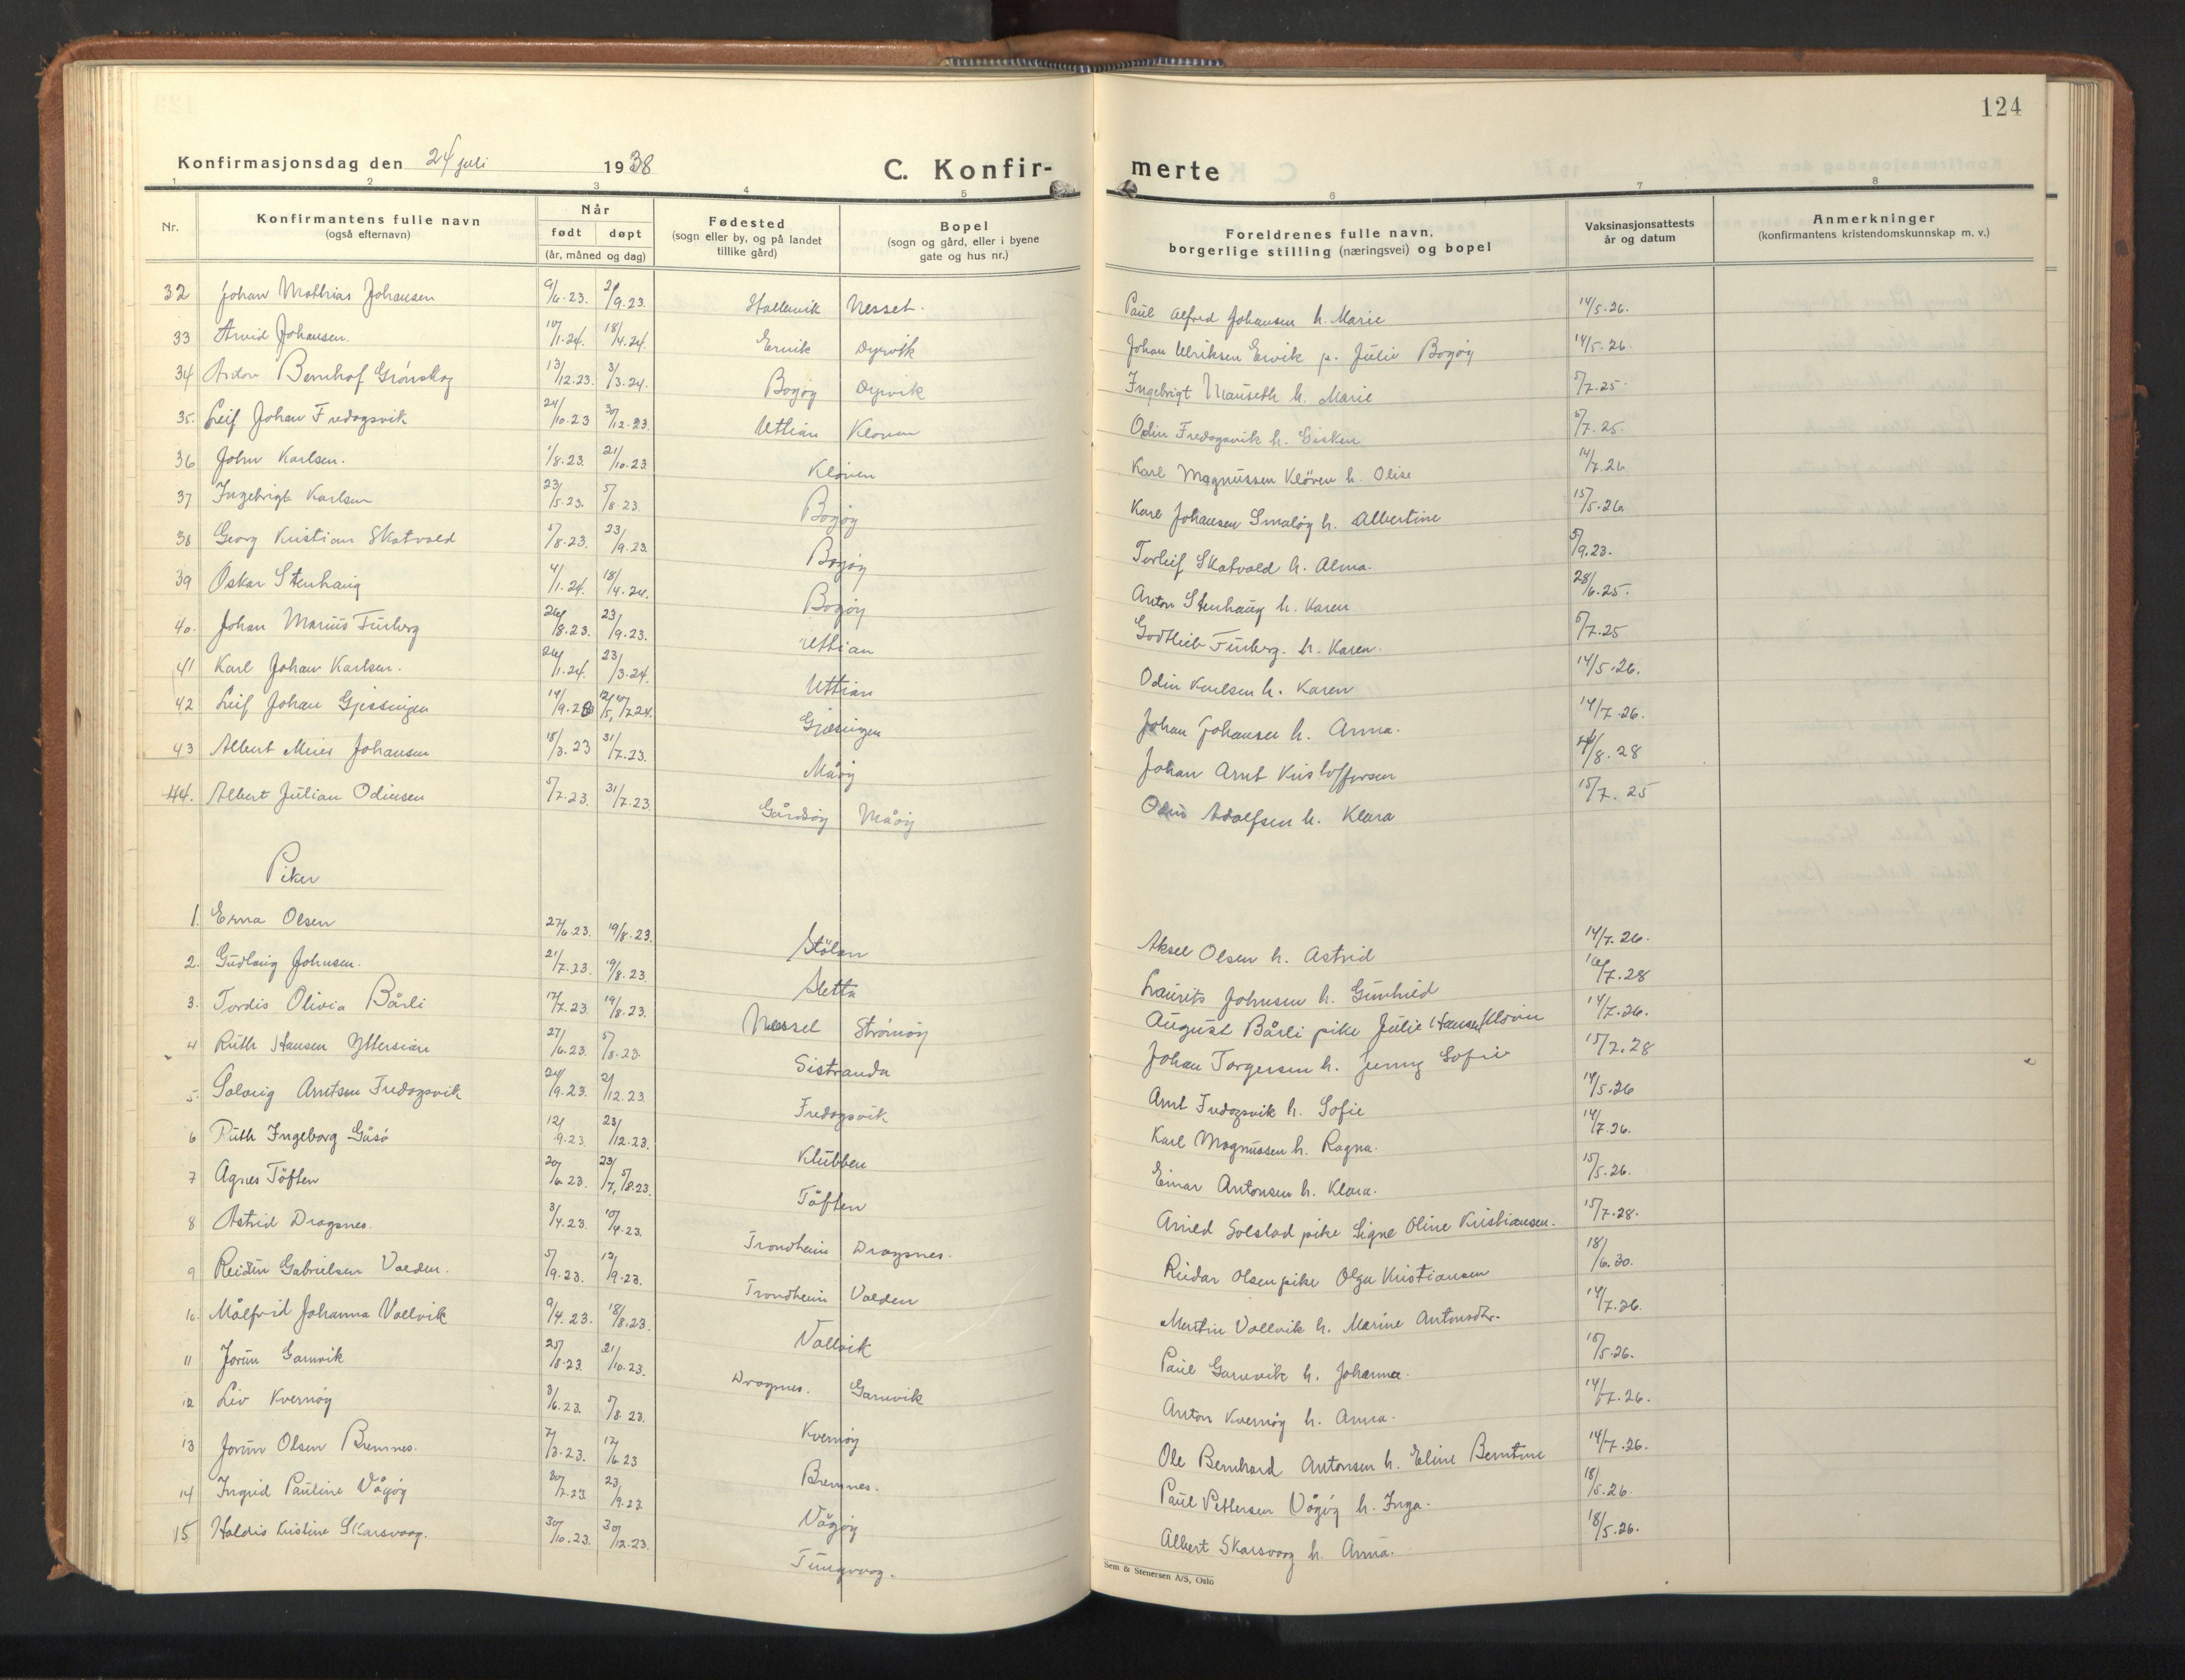 124
Konfirmasjonsdag den 24 juli 1938 C. Konfir- merte
1 2 3 4 5 6 7 8
Nr. Konfirmantens fulle navn (også efternavn) Når født døpt (år, måned og dag) Fødested (sogn eller by, og på landet tillike gård) Bopel (sogn og gård, eller i byene gate og hus nr.) Foreldrenes fulle navn, borgerlige stilling (næringsvei) og bopel Vaksinasjonsattests år og datum Anmerkninger (konfirmantens kristendomskunnskap m. v.)
32 Johan Mathias Johansen 9/6.23. 2/9.23. Hallervik Nesset. Paul Alfred Johansen h. Marie 14/5.26.
33 Arvid Johansen. 10/1.24. 18/4.24. Ervik Dyrvik Johan Ulriksen Ervik p. Julie Bogøy 14/5.26.
34 Anton Bernhof Grønskog 13/12.23. 3/3.24. Bogøy Dyrvik Ingebrigt Mauseth h. Marie 5/7.25.
35. Leif Johan Fredagsvik 24/10.23 30/12.23. Uttian Kløven Odin Fredagsvik h. Gisken 5/7.25.
36 John Karlsen. 1/8.23. 21/10.23. Kløven Karl Magnussen Kløven h. Olise 14/7.26
37 Ingebrigt Karlsen 23/5.23. 5/8.23. Bogøy Karl Johansen Smaløy h. Albertine 15/5.26.
38 Georg Kristian Skatvold 5/8.23. 23/9.23. Bogøy Torleif Skatvold h. Alma. 5/9.23.
39 Oskar Stenhaug 4/1.24. 18/4.24. Bogøy Anton Stenhaug h. Karen 28/6.25.
40. Johan Marius Furberg 26/8.23. 23/9.23. Uttian Godtlieb Furberg. h. Karen. 5/7.25
41 Karl Johan Karlsen. 26/1.24. 23/3.24. Uttian Odin Karlsen h. Karen 14/5.26.
42 Leif Johan Gjessingen 14/9.23 12/5, 10/7.24. Gjæsingen Johan Johansen h. Anna. 14/7.26.
43 Albert Meier Johansen 18/3.23 31/7.23. Måøy Johan Arnt Kristoffersen 4/8.28
44. Albert Julian Odinsen 5/7.23. 31/7.23 Gårdsøy Måøy Odin Adolfsen h. Klara 15/7.25
Piker
1. Erna Olsen 27/6.23. 19/8.23. Stölan Aksel Olsen h. Astrid 14/7.26.
2. Gudlaug Johnsen. 21/7.23. 19/8.23. Sletta Laurits Johnsen h. Gunhild 16/7.28
3. Tordis Olivia Bårli 17/7.23. 19/8.23. Nessel Strømøy August Bårli pike Julie Hansen Kløven 14/7.26.
4 Ruth Hansen Yttersian 27/6.23. 5/8.23. Sistranda Johan Torgersen h. Jenny Sofie 15/7.28
5. Solveig Arntsen Fredagsvik 24/9.23. 2/12.23. Fredagsvik Arnt Fredagsvik h. Sofie 14/5.26
6 Ruth Ingeborg Gåsø 12/9.23. 23/12.23. Klubben Karl Magnussen h. Ragna. 14/7.26.
7 Agnes Töften 20/6.23. 23/7, 5/8.23. Töften Einar Antonsen h. Klara. 15/5.26.
8 Astrid Dragsnes. 3/4.23. 10/4.23. Trondheim Dragsnes. Arnold Solstad pike Signe Oline Kristiansen. 15/7.28.
9 Reidun Gabrielsen Valden. 5/9.23. 13/9.23. Trondheim Valden Reidar Olsen pike Olga Kristiansen 18/6.30.
10. Målfrid Johanna Vallvik 9/4.23. 18/8.23. Vallvik Martin Vallvik h. Marine Antonsdtr. 14/7.26.
11 Jorun Garnvik 25/8.23. 21/10.23. Dragsnes. Garnvik Paul Garnvik h. Johanna. 18/5.26.
12 Liv Kvernøy 3/6.23. 5/8.23. Kvernøy Anton Kvernøy h. Anna. 14/7.26.
13 Jorun Olsen Bremnes. 7/3.23. 17/6.23 Bremnes. Ole Bernhard Antonsen h. Eline Berntine 14/7.26.
14 Ingrid Pauline Vågøy 30/7.23. 23/9.23. Vågøy Paul Pettersen Vågøy h. Inga. 18/5.26.
15 Haldis Kristine Skarsvaag. 30/10.23. 30/12.23. Tungvaag. Albert Skarsvaag h. Anna. 18/5.26.
Sem & Stenersen A/S, Oslo